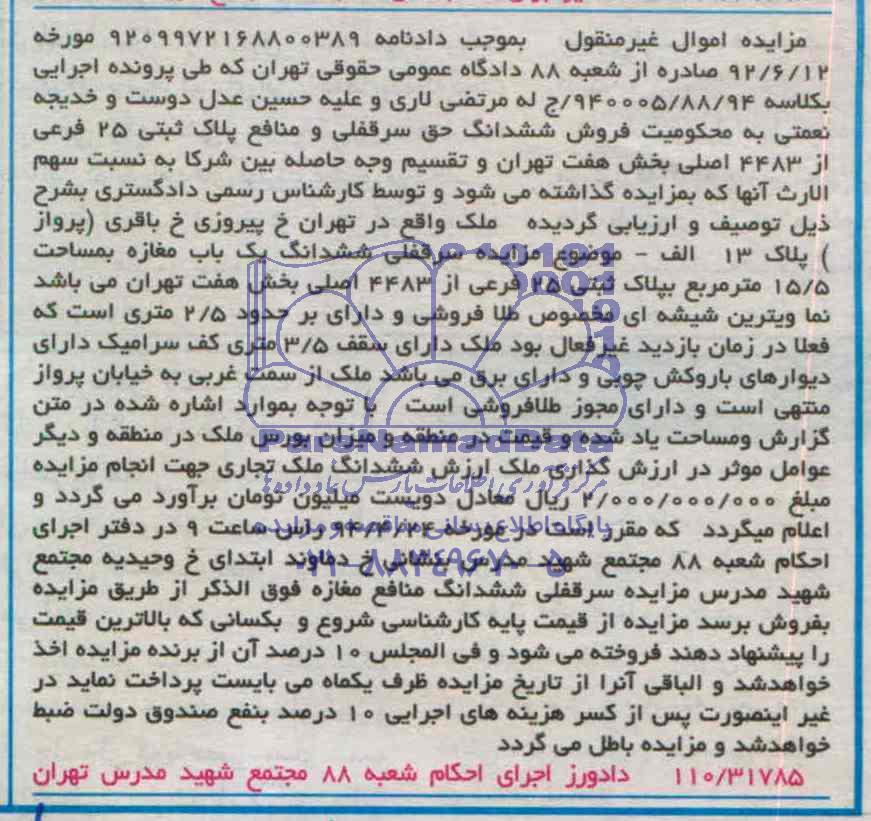 مزایده اموال غیرمنقول بموجب دادنامه ۹۲۰۹۹۷۲۱۶۸۸۰۰۳۸۹ مورخه
۹۲/۶/۱۲ صادره از شعبه ۸۸ دادگاه عمومی حقوقی تهران که طی پرونده اجرایی
بکلاسه ۹۴۰۰۰۵/۸۸/۹۴/ج له مرتضی لاری و علیه حسین عدل دوست و خدیجه
نعمتی به محکومیت فروش ششدانگ حق سرقفلی و منافع پلاک ثبتی ۲۵ فرعی
از ۴۴۸۳ اصلی بخش هفت تهران و تقسیم وجه حاصله بین شرکا به نسبت سهم
الارث آنها که بمزایده گذاشته می شود و توسط کارشناس رسمی دادگستری بشرح
ذیل توصیف و ارزیابی گردیده ملک واقع در تهران خ پیروزی خ باقری (پرواز
) پلاک ۱۳ الف - موضوع مزایده سرقفلی ششدانگ یک باب مغازه بمساحت
۱۵/۵ مترمربع بپلاک ثبتی ۲۵ فرعی از ۴۴۸۳ اصلی بخش هفت تهران می باشد
نما ویترین شیشه ای مخصوص طلا فروشی و دارای بر حدود ۲/۵ متری است که
فعلا در زمان بازدید غیرفعال بود ملک دارای سقف ۳/۵ متری کف سرامیک دارای
دیوارهای باروکش چوبی و دارای برق می باشد ملک از سمت غربی به خیابان پرواز
منتهی است و دارای مجوز طلافروشی است با توجه بموارد اشاره شده در متن
گزارش ومساحت یاد شده و قیمت در منطقه و میزان بورس ملک در منطقه و دیگر
عوامل موثر در ارزش گذاری ملک ارزش ششدانگ ملک تجاری جهت انجام مزایده
مبلغ ۲/۰۰۰/۰۰۰/۰۰۰ ریال معادل دویست میلیون تومان برآورد می گردد و
اعلام میگردد که مقرر است در مورخه ۹۴/۴/۲۴ راس ساعت ۹ در دفتر اجرای
احکام شعبه ۸۸ مجتمع شهید مدرس بنشانی خ دماوند ابتدای خ وحیدیه مجتمع
شهید مدرس مزایده سرقفلی ششدانگ منافع مغازه فوق الذکر از طریق مزایده
بفروش برسد مزایده از قیمت پایه کارشناسی شروع و بکسانی که بالاترین قیمت
را پیشنهاد دهند فروخته می شود و فی المجلس ۱۰ درصد آن از برنده مزایده اخذ
خواهدشد و الباقی آنرا از تاریخ مزایده ظرف یکماه می بایست پرداخت نماید در
غیر اینصورت پس از کسر هزینه های اجرایی ۱۰ درصد بنفع صندوق دولت ضبط
خواهدشد و مزایده باطل می گردد
۱۱۰/۳۱۷۸۵ دادورز اجرای احکام شعبه ۸۸ مجتمع شهید مدرس تهران
ParsNamadData
مرکز فرآوری اطلاعات پارس نماد داده ها
پایگاه اطلاع رسانی مناقصه و مزایده
۰۲۱-۸۸۳۴۹۶۷۰-۵